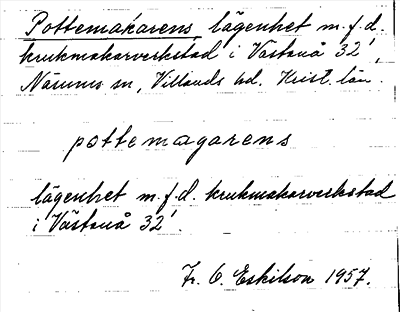 Pottemakarens lägenhet m.f.d.
krukmakarverkstad i Västanå 32¹,
Näsums sn, Villands hd. Krist. län.
pottemagarens
lägenhet m.f.d. krukmakarverkstad
i Västanå 32¹.
Fr. O. Eskilson 1957.